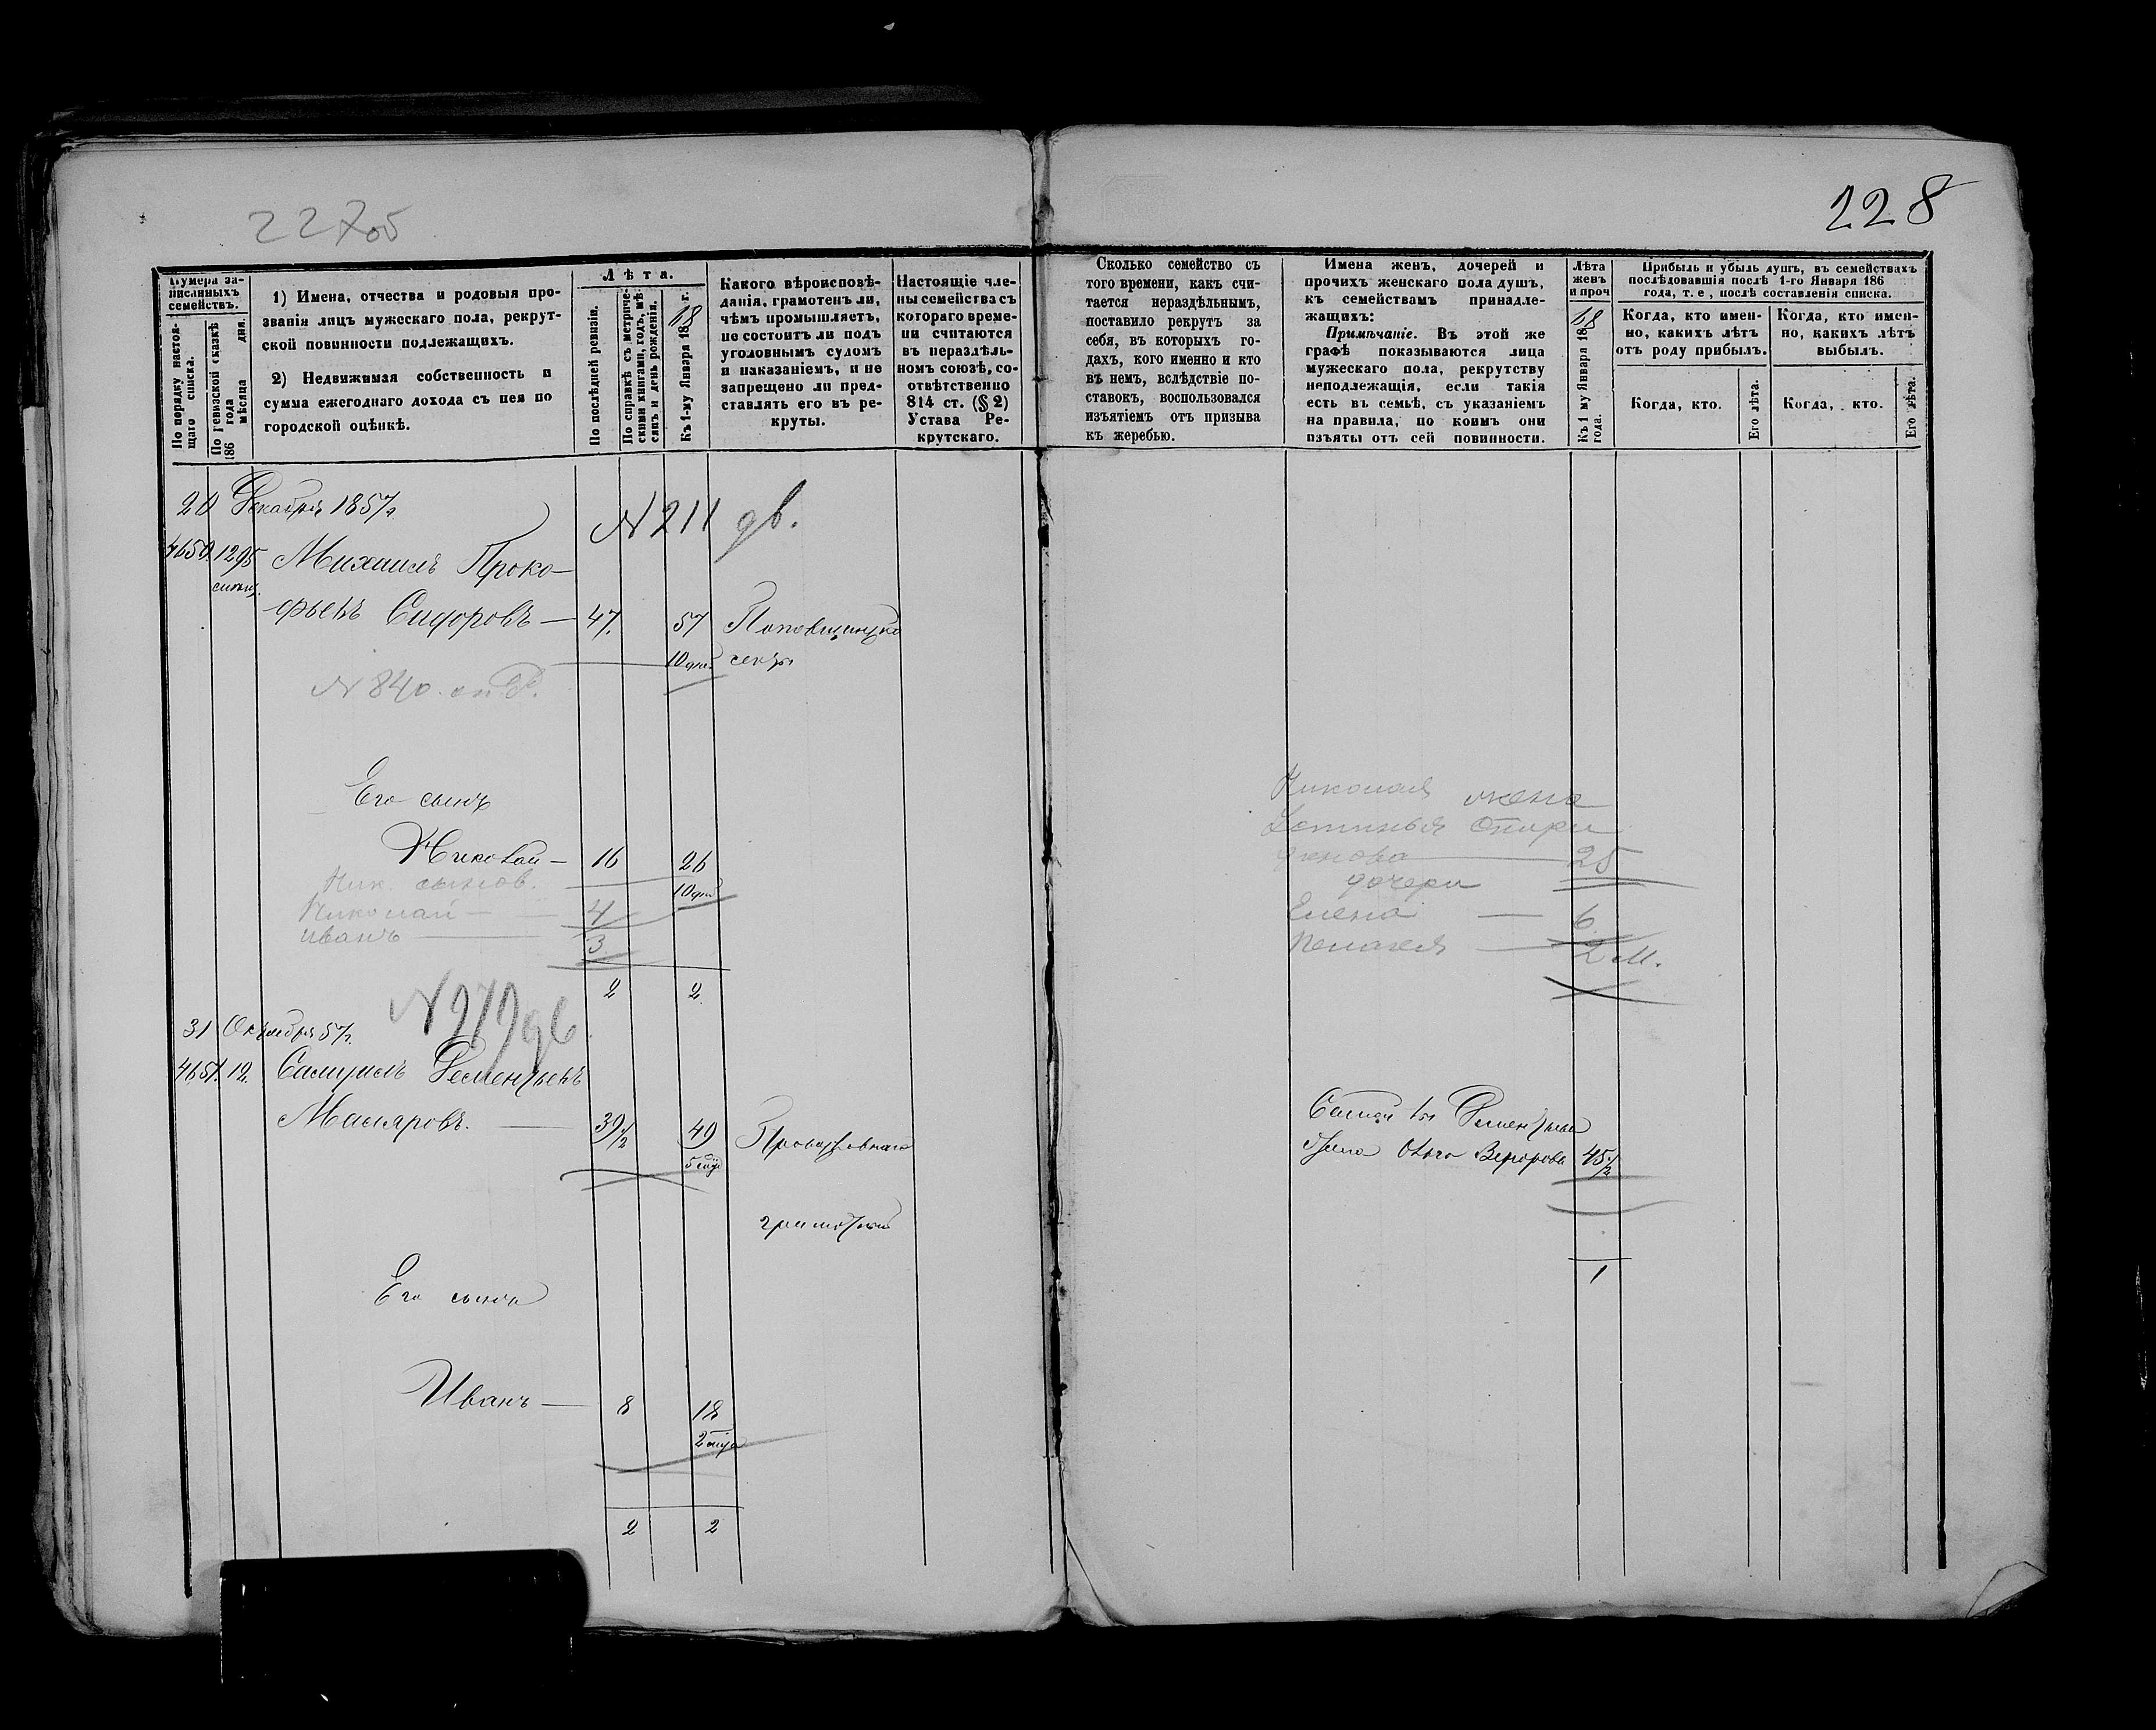 228
Нумера за-
писанныхъ
семействъ.
По порядку настоя-
щаго списка.
По ревизской сказкѣ
186 года
мѣсяца дня.
1) Имена, отчества и родовыя про-
званія лицъ мужескаго пола, рекрут-
ской повинности подлежащихъ.
2) Недвижимая собственность и
сумма ежегоднаго дохода съ нея по
городской оцѣнкѣ.
Лѣта.
По послѣдней ревизіи.
По справкѣ съ метриче-
скими книгами, годъ, мѣ-
сяцъ и день рожденія.
Къ 1-му Января 1868 г.
Какого вѣроисповѣ-
данія, грамотенъ ли,
чѣмъ промышляетъ,
не состоитъ ли подъ
уголовнымъ судомъ
и наказаніемъ, и не
запрещено ли пред-
ставлять его въ ре-
круты.
Настоящіе чле-
ны семейства съ
котораго време-
ни считаются
въ нераздѣль-
номъ союзѣ, со-
отвѣтственно
814 ст. (§ 2)
Устава Ре-
крутскаго.
Сколько семейство съ
того времени, какъ счи-
тается нераздѣльнымъ,
поставило рекрутъ за
себя, въ которыхъ го-
дахъ, кого именно и кто
въ немъ, вслѣдствіе по-
ставокъ, воспользовался
изъятіемъ отъ призыва
къ жеребью.
Имена женъ, дочерей и
прочихъ женскаго пола душъ,
къ семействамъ принадле-
жащихъ:
Примѣчаніе. Въ этой же
графѣ показываются лица
мужескаго пола, рекрутству
неподлежащія, если такія
есть въ семьѣ, съ указаніемъ
на правила, по коимъ они
изъяты отъ сей повинности.
Лѣта
женъ
и проч
Къ 1 му Января 1868
года.
Прибыль и убыль душъ, въ семействахъ
послѣдовавшія послѣ 1-го Января 186
года, т. е, послѣ составленія списка.
Когда, кто имен-
но, какихъ лѣтъ
отъ роду прибылъ.
Когда, кто имен-
но, какихъ лѣтъ
выбылъ.
Когда, кто.
Его лѣта.
Когда, кто.
Его лѣта.
20 Декабря 1857 г.
N 211 дв.
4650. 1295 Михаилъ Проко-
фьевъ Сидоровъ — 47. 57 Поповщинско
секты
N 840.
Его сынъ
Николай — 16 26
Ник. сынов.
Николай — 4
Иванъ — 3
2 2
Николая жена
Устинья
25
дочери
Елена — 6
Пелагея — 2 м.
31 Октября 57 г.
4651. 12. Самуилъ Дементьевъ
Масляровъ. — 39 1/2 49 Православнаго
грамотный
Дементьева
жена 45 1/2
1
Его сынъ
Иванъ — 8 18
2 2